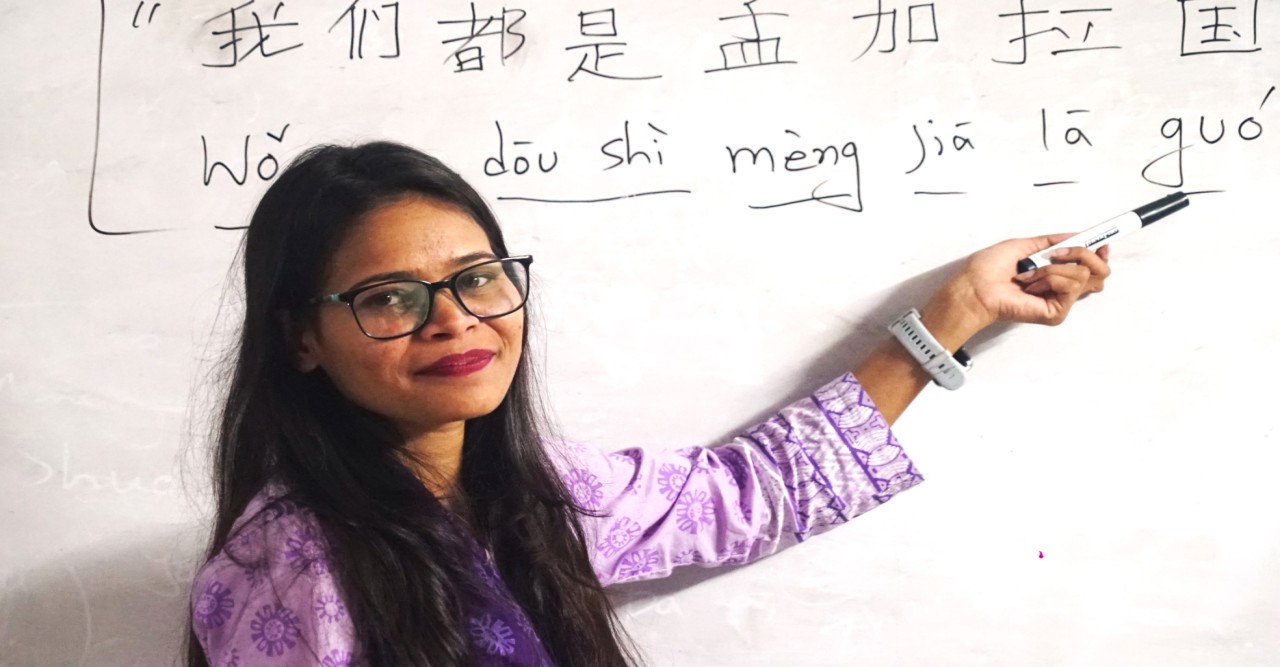 “ 我们都是孟加拉国
Wǒ dōu shì mèng jiā lā guó